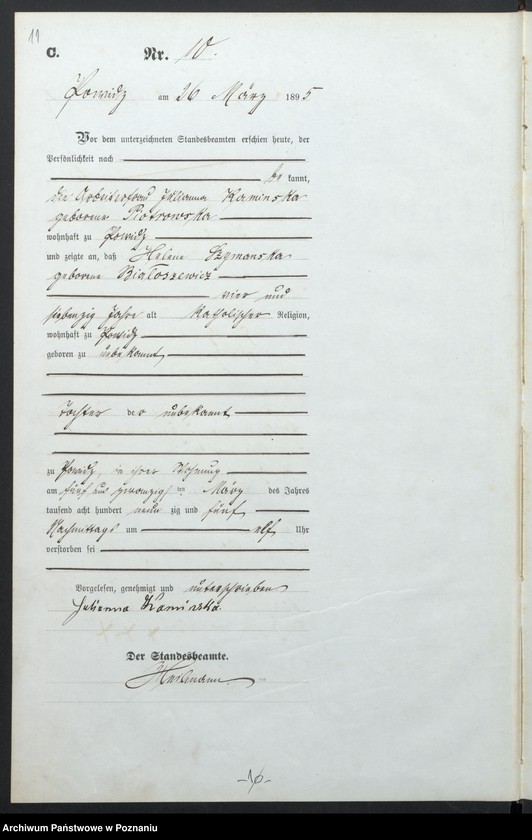 11
C.
Nr. 10.
Powidz am 26 März 1895
Vor dem unterzeichneten Standesbeamten erschien heute, der
Persönlichkeit nach
be kannt,
die Arbeiterfrau Julianna Kaminska
geborene Piotrowska
wohnhaft zu Powidz
und zeigte an, daß Helene Szymanska
geborene Białoszewicz
vier und
siebenzig Jahre alt katholischer Religion,
wohnhaft zu Powidz
geboren zu unbekannt
Tochter der unbekannt
zu Powidz, in ihrer Wohnung
am fünf und zwanzigsten März des Jahres
tausend acht hundert neun zig und fünf
Nachmittags um elf Uhr
verstorben sei
Vorgelesen, genehmigt und unterschrieben
Julianna Kaminska
Der Standesbeamte.
Archiwum Państwowe w Poznaniu